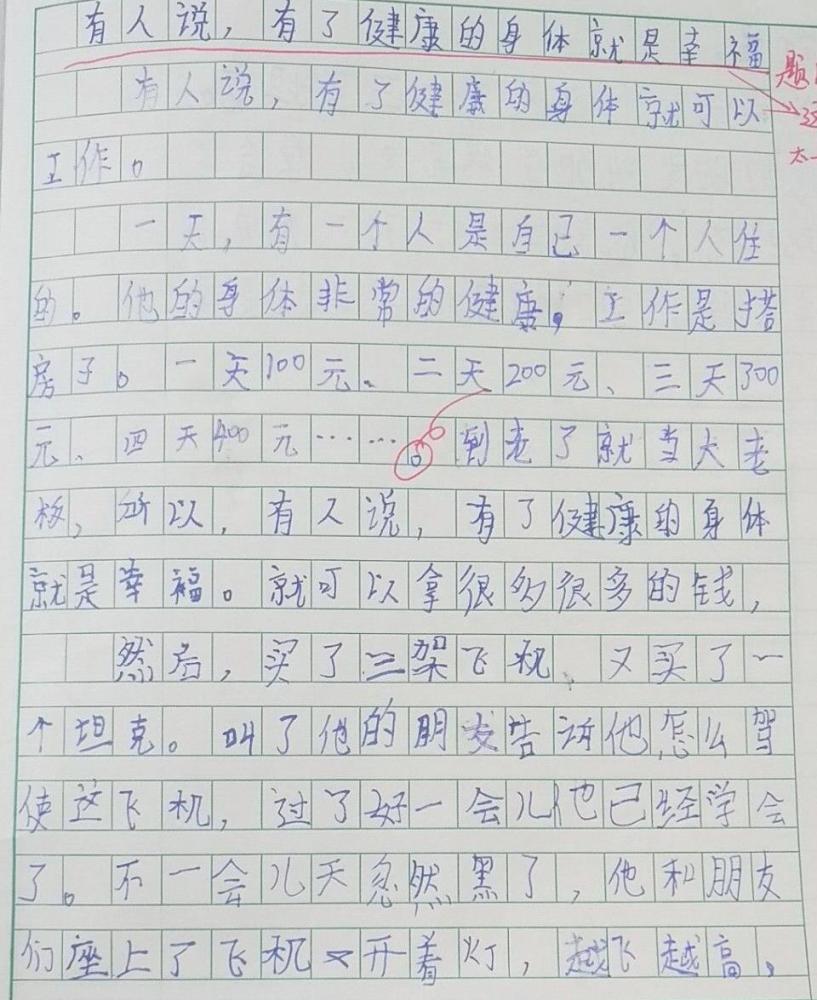 有人说，有了健康的身体就是幸福
有人说，有了健康的身体就可以
工作。
一天，有一个人是自己一个人住
的。他的身体非常的健康，工作是搭
房子。一天100元、二天200元、三天300
元、四天400元……。到老了就当大老
板，所以，有人说，有了健康的身体
就是幸福。就可以拿很多很多的钱，
然后，买了三架飞机、又买了一
个坦克。叫了他的朋友告诉他怎么驾
使这飞机，过了好一会儿他已经学会
了。不一会儿天忽然黑了，他和朋友
们座上了飞机开着灯，越飞越高，
题
太